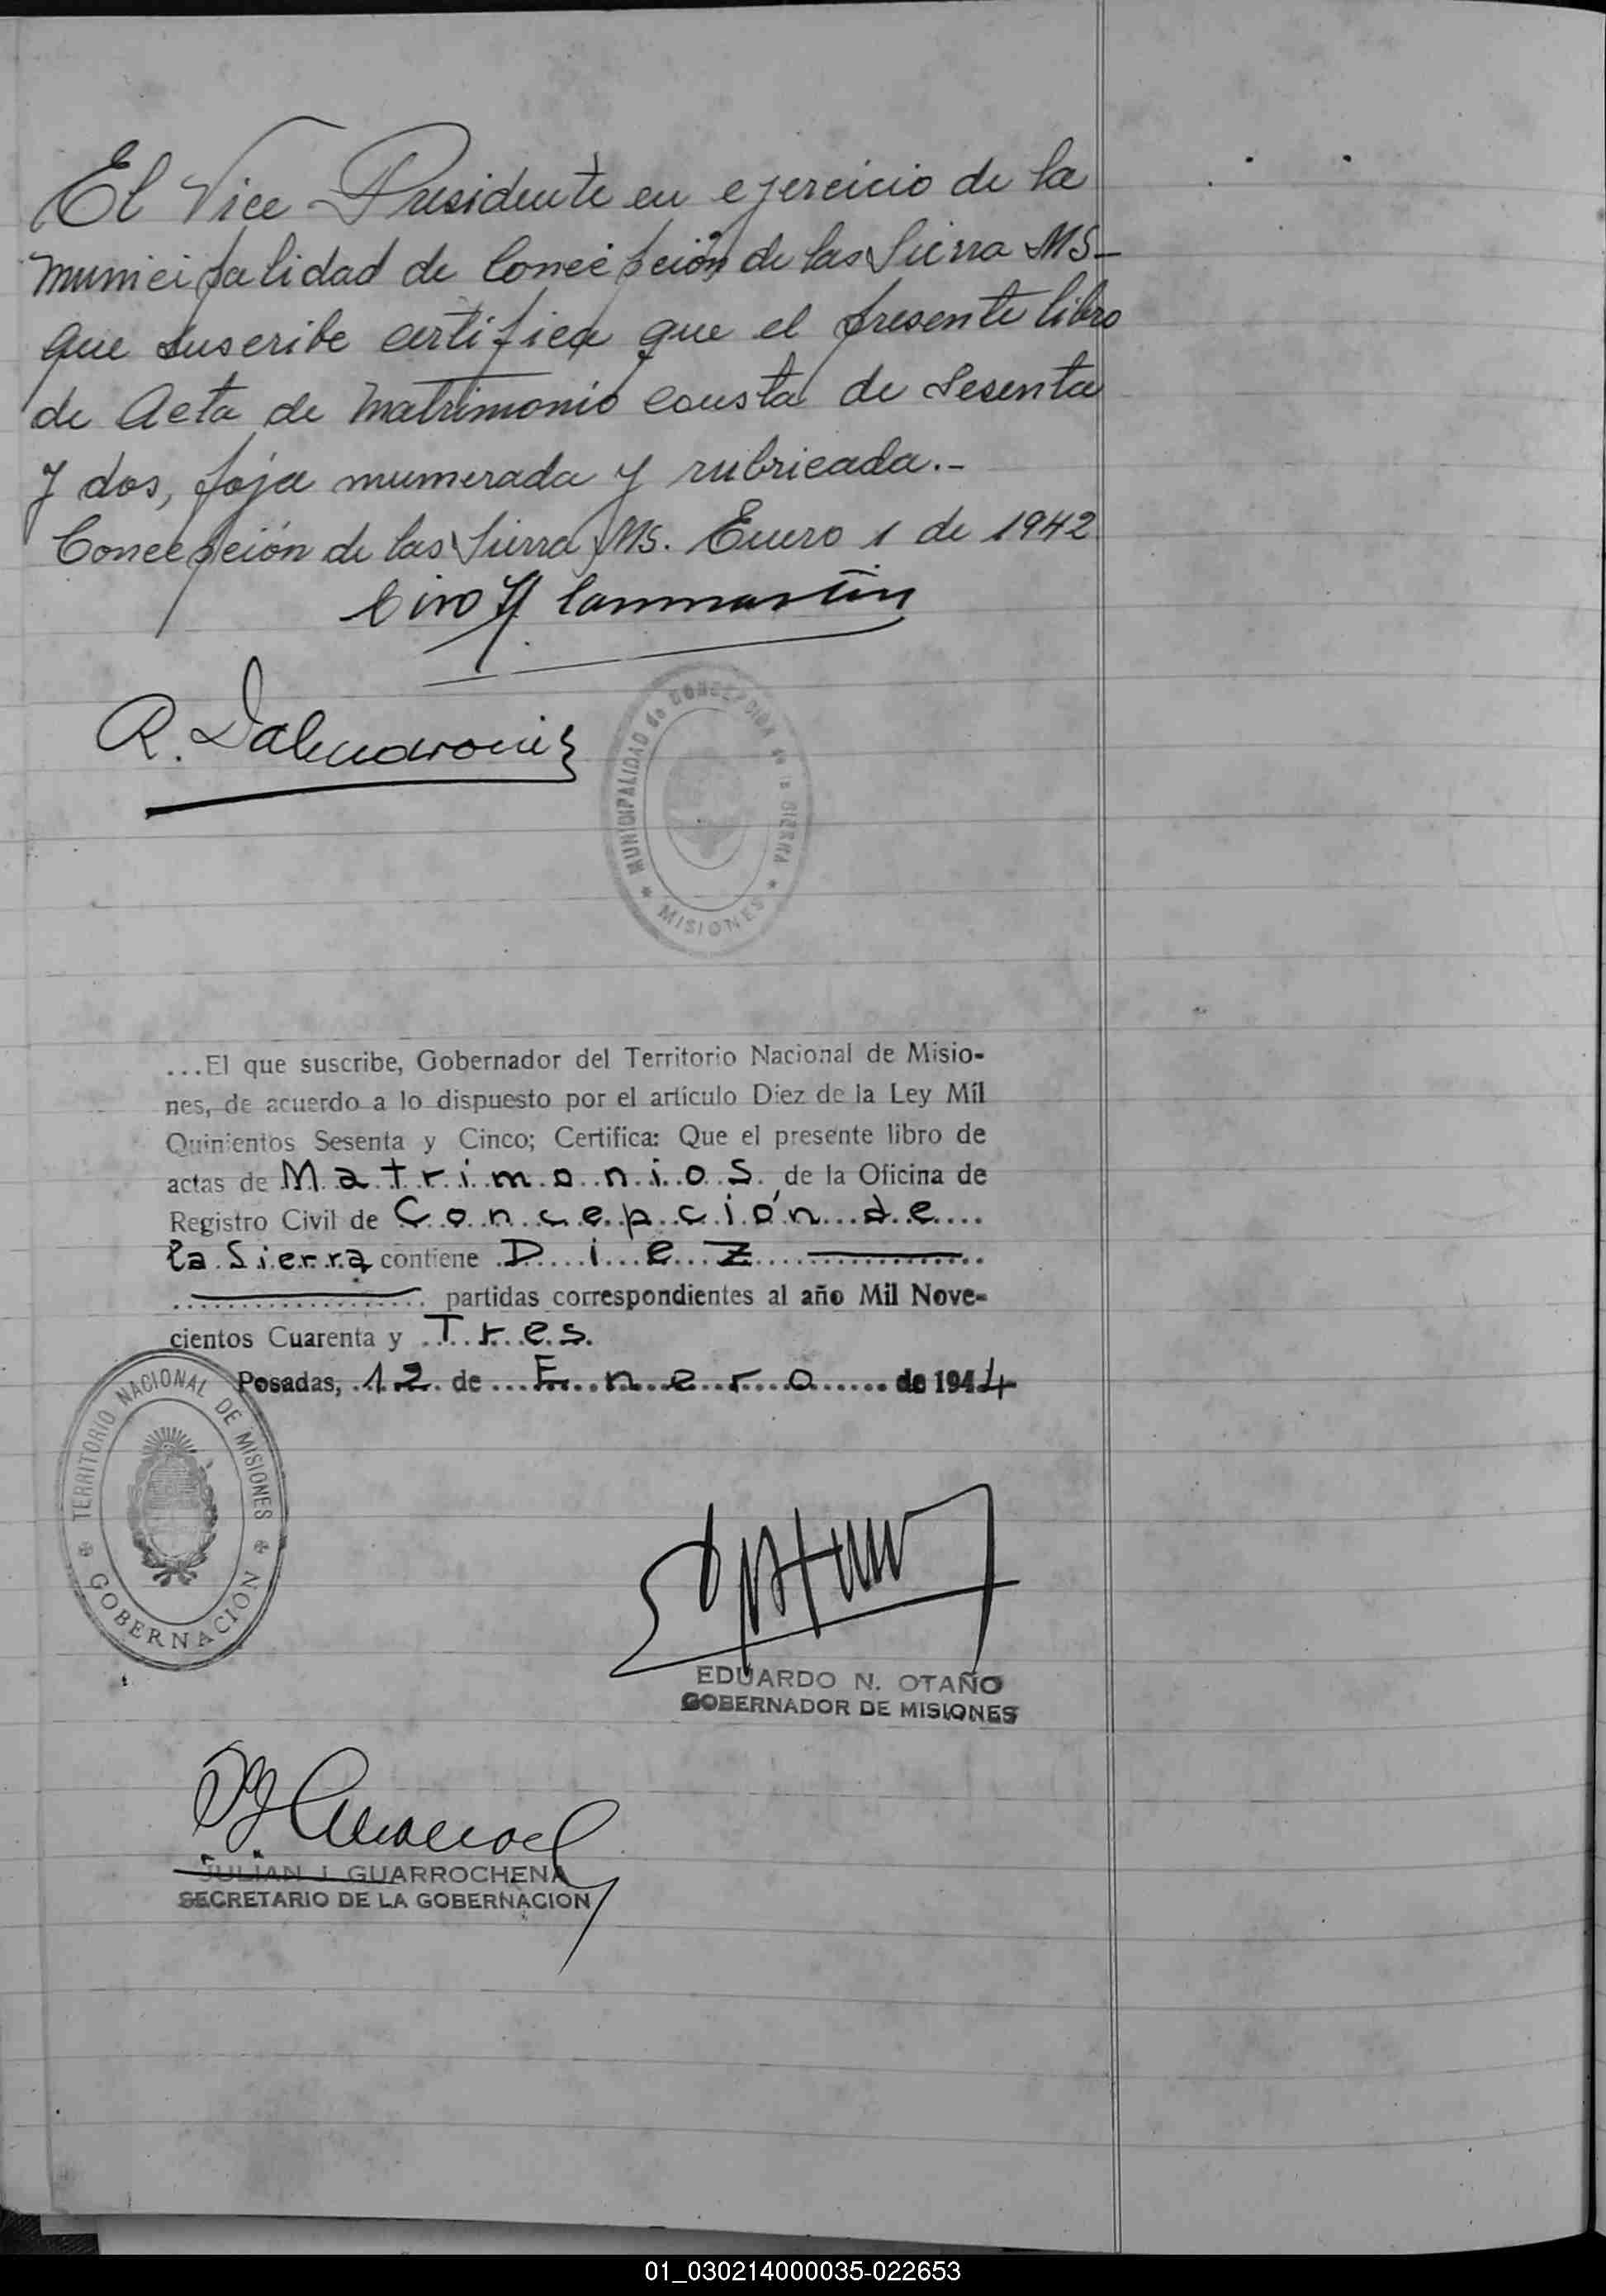 El Vice Presidente en ejercicio de la
Municipalidad de Concepción de las Sierra MS-
que suscribe certifica que el presente libro
de Acta de Matrimonio consta de Sesenta
y dos, foja numerada y rubricada.-
Concepción de las Sierra, Ms. Enero 1 de 1942
Ciro
R.
MUNICIPALIDAD de CONCEPCIÓN de la SIERRA
* MISIONES *
...El que suscribe, Gobernador del Territorio Nacional de Misio-
nes, de acuerdo a lo dispuesto por el artículo Diez de la Ley Mil
Quinientos Sesenta y Cinco; Certifica: Que el presente libro de
actas de Matrimonios, de la Oficina de
Registro Civil de Concepción de
la Sierra contiene Diez
partidas correspondientes al año Mil Nove-
cientos Cuarenta y Tres.
Posadas, 12 de Enero de 1944
TERRITORIO NACIONAL DE MISIONES
GOBERNACION
EDUARDO N. OTAÑO
GOBERNADOR DE MISIONES
JULIAN J. GUARROCHENA
SECRETARIO DE LA GOBERNACION
01_030214000035-022653